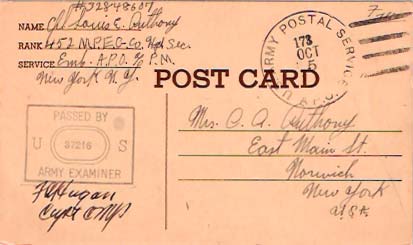 #32848607
NAME Cpl Louis E. Anthony
RANK 452 M.P.E.G. Co. Hq Sec.
SERVICE Emb. A.P.O. % P.M.
New York N.Y.
POST CARD
ARMY POSTAL SERVICE
173
OCT
5
A.P.O.
Free
PASSED BY
U 37216 S
ARMY EXAMINER
Capt CMP
Mrs. C. A. Anthony
East Main St.
Norwich
New York
USA